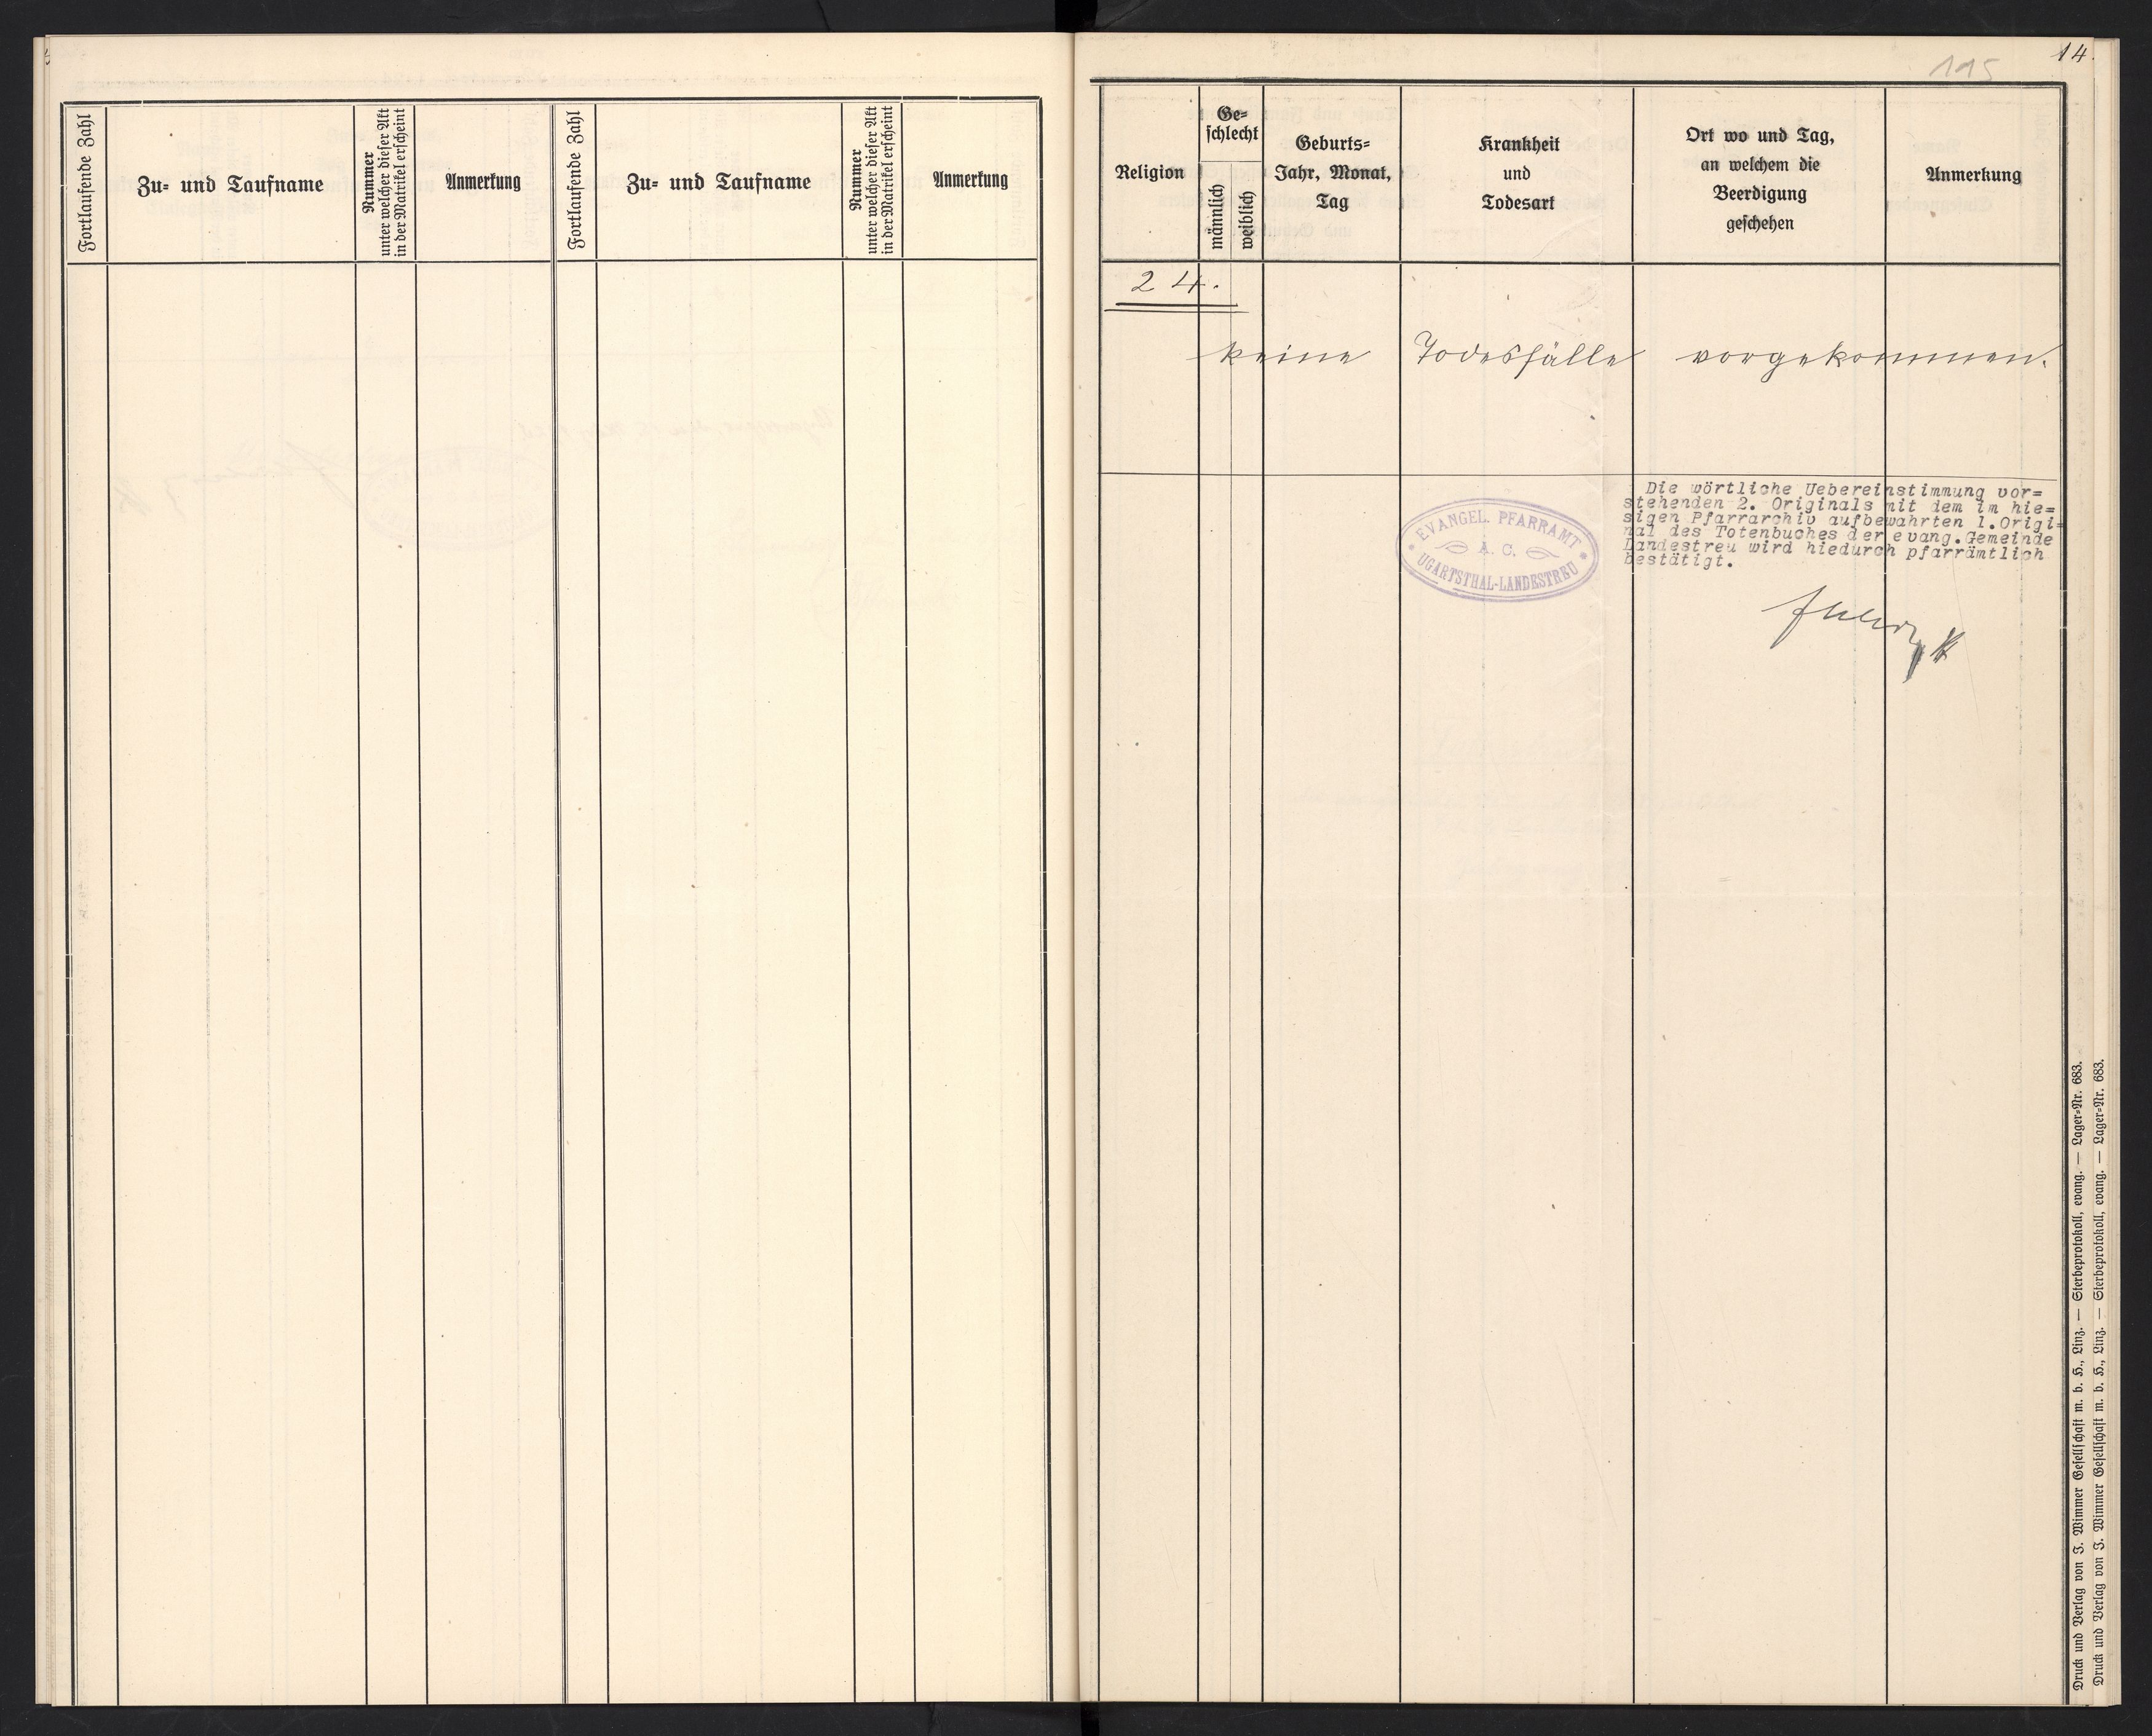 Fortlaufende Zahl
Zu= und Taufname
Nummer
unter welcher dieser Akt
in der Matrikel erscheint
Anmerkung
Fortlaufende Zahl
Zu= und Taufname
Nummer
unter welcher dieser Akt
in der Matrikel erscheint
Anmerkung
115
14.
Religion
Ge=
schlecht
männlich
weiblich
Geburts=
Jahr, Monat,
Tag
Krankheit
und
Todesart
Ort wo und Tag,
an welchem die
Beerdigung
geschehen
Anmerkung
24.
keine Todesfälle vorgekommen.
Die wörtliche Uebereinstimmung vor=
stehenden 2. Originals mit dem im hie=
sigen Pfarrarchiv aufbewahrten 1.Origi=
nal des Totenbuches der evang.Gemeinde
Landestreu wird hiedurch pfarrämtlich
bestätigt.
EVANGEL. PFARRAMT
A. C.
UGARTSTHAL-LANDESTREU
Druck und Verlag von J. Wimmer Gesellschaft m. b. H., Linz. — Sterbeprotokoll, evang. — Lager=Nr. 683.
Druck und Verlag von J. Wimmer Gesellschaft m. b. H., Linz. — Sterbeprotokoll, evang. — Lager=Nr. 683.